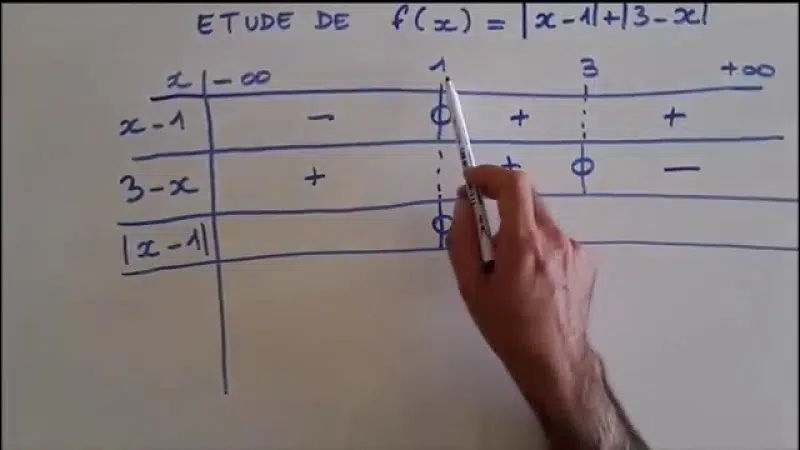 ETUDE DE f(x) = |x-1|+|3-x|
x -∞ 1 3 +∞
x-1 - 0 + +
3-x + + 0 -
|x-1| 0